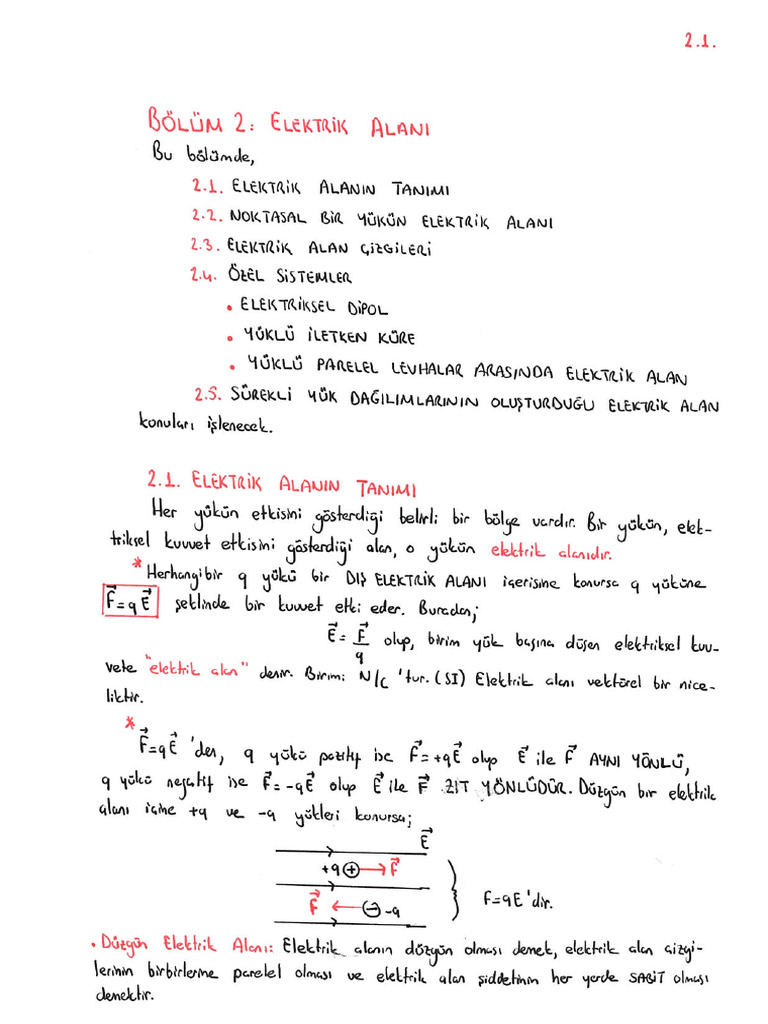 2.1.
BÖLÜM 2: ELEKTRİK ALANI
Bu bölümde,
2.1. ELEKTRİK ALANIN TANIMI
2.2. NOKTASAL BİR YÜKÜN ELEKTRİK ALANI
2.3. ELEKTRİK ALAN ÇİZGİLERİ
2.4. ÖZEL SİSTEMLER
• ELEKTRİKSEL DİPOL
• YÜKLÜ İLETKEN KÜRE
• YÜKLÜ PARELEL LEVHALAR ARASINDA ELEKTRİK ALAN
2.5. SÜREKLİ YÜK DAĞILIMLARININ OLUŞTURDUĞU ELEKTRİK ALAN
konuları işlenecek.
2.1. ELEKTRİK ALANIN TANIMI
Her yükün etkisini gösterdiği belirli bir bölge vardır. Bir yükün, elek-
triksel kuvvet etkisini gösterdiği alan, o yükün elektrik alanıdır.
* Herhangibir q yükü bir DIŞ ELEKTRİK ALANI içerisine konursa q yüküne
F⃗=qE⃗ şeklinde bir kuvvet etki eder. Buradan;
E⃗ = F⃗/q olup, birim yük başına düşen elektriksel kuv-
vete "elektrik alan" denir. Birimi N/C 'tur. (SI) Elektrik alanı vektörel bir nice-
liktir.
*
F⃗=qE⃗ 'den, q yükü pozitif ise F⃗=+qE⃗ olup E⃗ ile F⃗ AYNI YÖNLÜ,
q yükü negatif ise F⃗=-qE⃗ olup E⃗ ile F⃗ ZIT YÖNLÜDÜR. Düzgün bir elektrik
alanı içine +q ve -q yükleri konursa;
E⃗
+q + F⃗
F⃗ - -q
F=qE'dir.
• Düzgün Elektrik Alanı: Elektrik alanın düzgün olması demek, elektrik alan çizgi-
lerinin birbirlerine parelel olması ve elektrik alan şiddetinin her yerde SABİT olması
demektir.